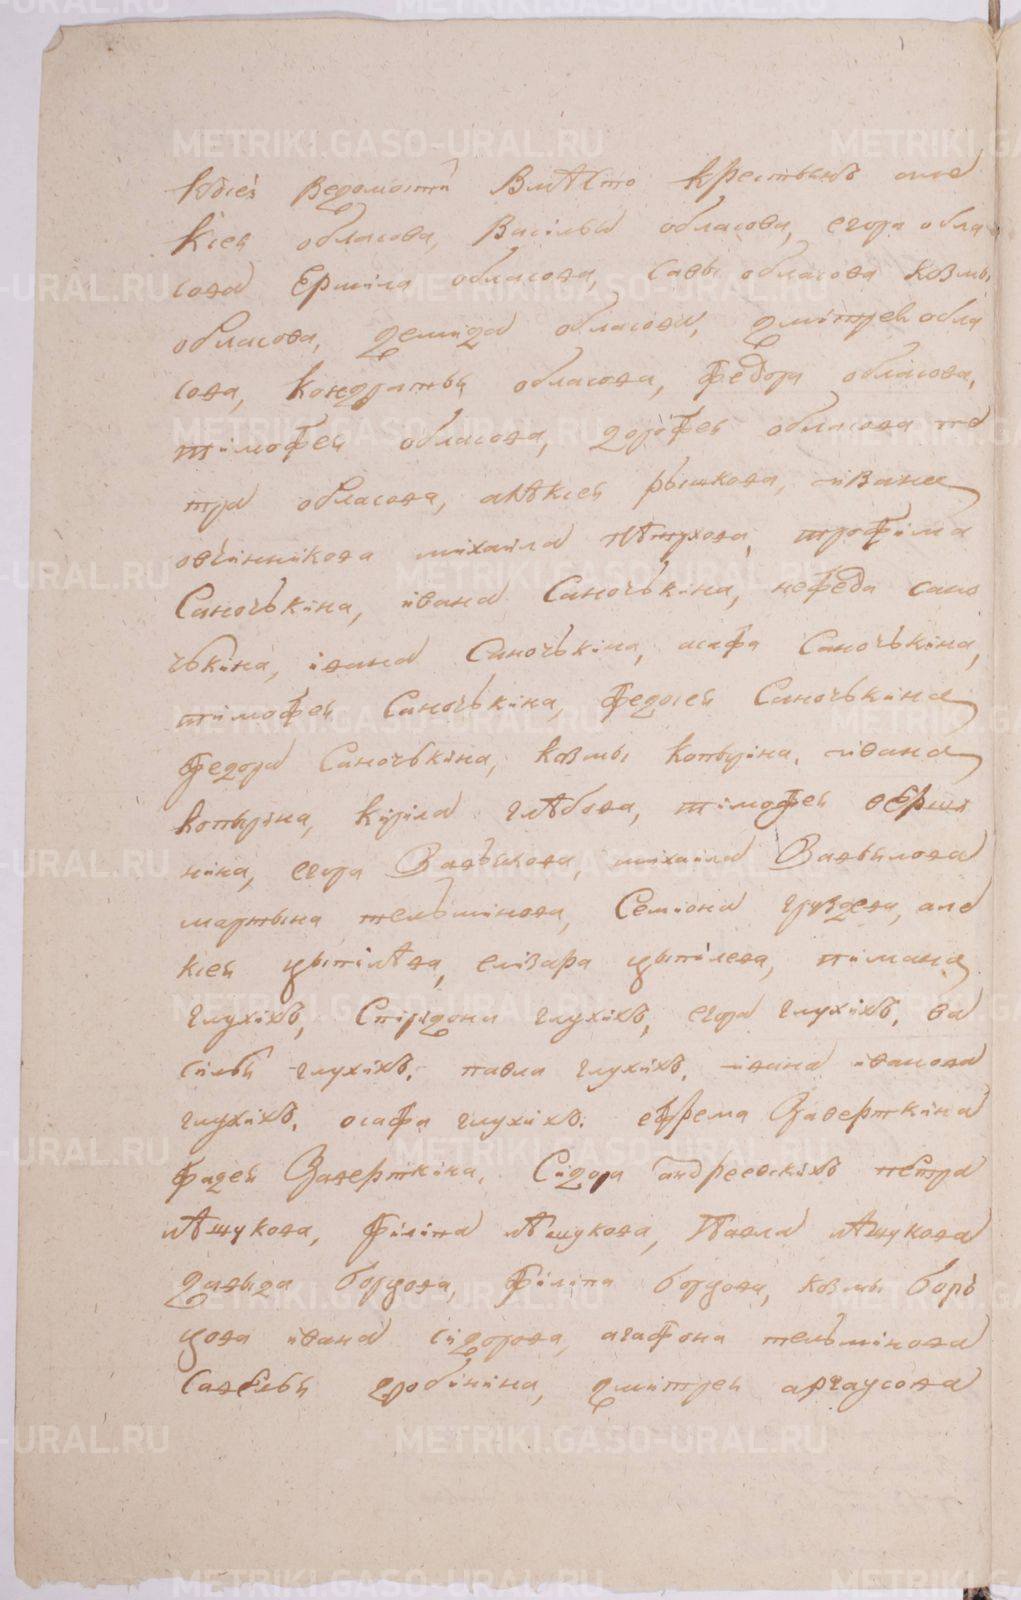 METRIKI.GASO-URAL.RU
К сей ведомостй вмѣсто крестьянъ але
ксея обласова, василья обласова, егора обла
сова ермила обласова, савы обласова козмы
обласова, демида обласова, дмитрея обла
сова, кондратья обласова, федора обласова,
тимофея обласова, дорофея обласова пе
тра обласова, алѣксея рышкова, ивана
овчинникова михаила пѣтухова, трофима
Саночькина, ивана Саночькина, нефеда сано
чькина, iвана Саночькина, асафа Саночькина,
тимофея Саночькина, федосея Саночькина
федора Саночькина, козмы копырина, ивана
копырина, кирила глѣбова, тимофея
нина, егора Завьялова, михаила Завьялова
мартына тельминова, Семiона груздева, але
ксея цыпилѣва, елiзара цыпiлева, пимана
глухiхъ, Спiридона глухiхъ, егора глухiхъ, ва
силья глухихъ, павла глухихъ, ивана иванова
глухiхъ, осафа глухихъ. ефрема Заверткина
фадея Заверткина, Сидора андреевскихъ петра
лѣщукова, филипа лѣщукова, Павла лѣщукова
давыда борцова, филипа борцова, козмы борь
цова ивана сидорова, агафона тельмiнова
Савелья дробинина, дмитрея аргаусова